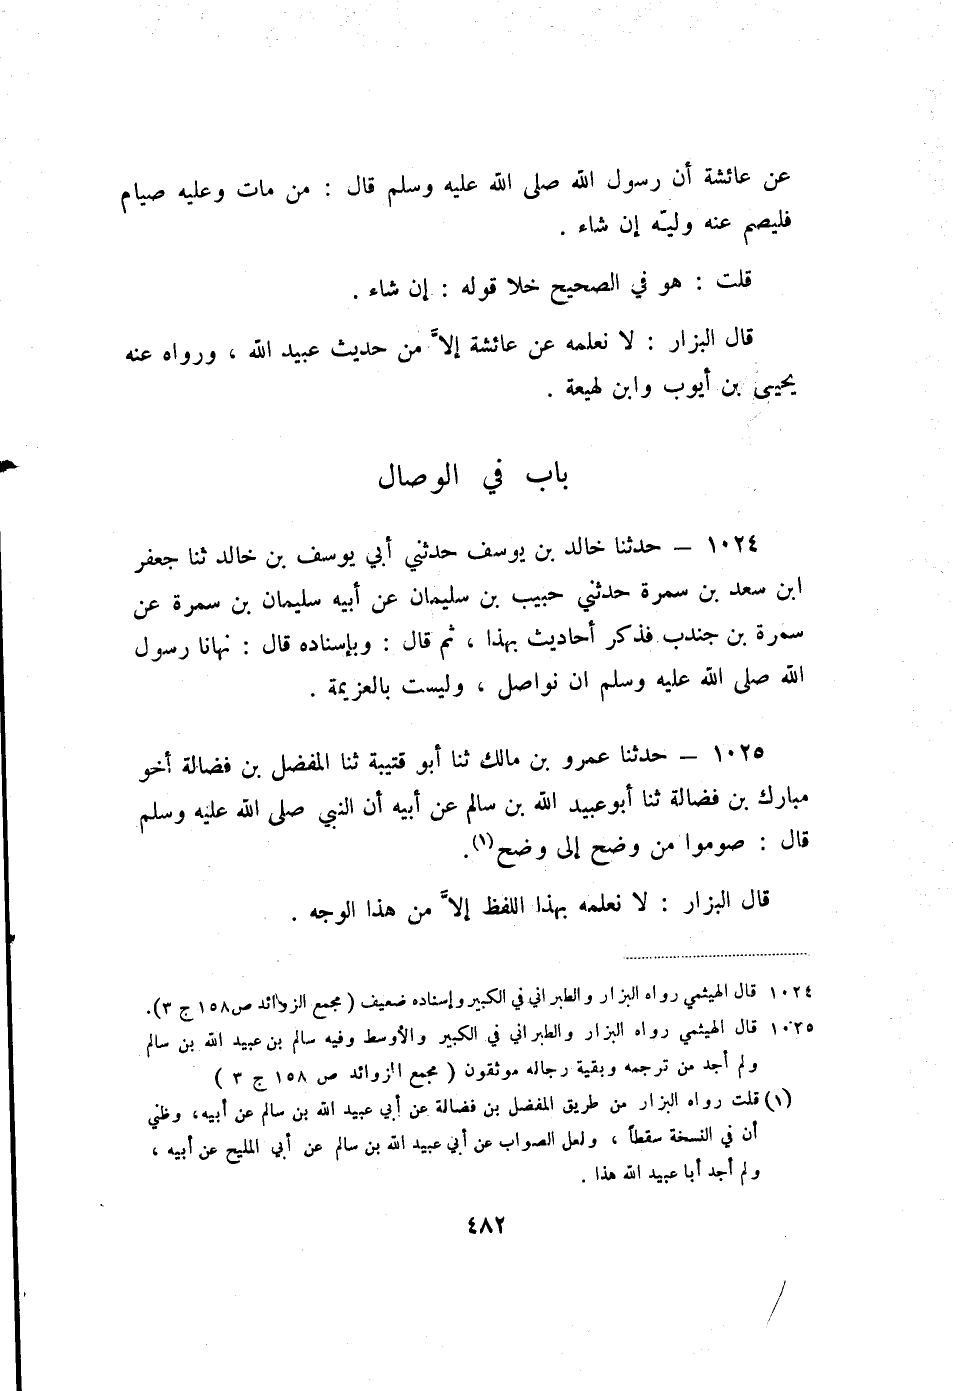 عن عائشة أن رسول الله صلى الله عليه وسلم قال : من مات وعليه صيام
فليصم عنه وليّه إن شاء .
قلت : هو في الصحيح خلا قوله : إن شاء .
قال البزار : لا نعلمه عن عائشة إلاَّ من حديث عبيد الله ، ورواه عنه
يحيى بن أيوب وابن لهيعة .
باب في الوصال
١٠٢٤ – حدثنا خالد بن يوسف حدثني أبي يوسف بن خالد ثنا جعفر
ابن سعد بن سمرة حدثني حبيب بن سليمان عن أبيه سليمان بن سمرة عن
سمرة بن جندب فذكر أحاديث بهذا ، ثم قال : وبإسناده قال : نهانا رسول
الله صلى الله عليه وسلم ان نواصل ، وليست بالعزيمة .
١٠٢٥ – حدثنا عمرو بن مالك ثنا أبو قتيبة ثنا المفضل بن فضالة أخو
مبارك بن فضالة ثنا أبوعبيد الله بن سالم عن أبيه أن النبي صلى الله عليه وسلم
قال : صوموا من وضح إلى وضح(١).
قال البزار : لا نعلمه بهذا اللفظ إلاَّ من هذا الوجه .
١٠٢٤ قال الهيثمي رواه البزار والطبراني في الكبير وإسناده ضعيف ( مجمع الزوائد ص١٥٨ ج ٣).
١٠٢٥ قال الهيثمي رواه البزار والطبراني في الكبير والأوسط وفيه سالم بن عبيد الله بن سالم
ولم أجد من ترجمه وبقية رجاله موثقون ( مجمع الزوائد ص ١٥٨ ج ٣ )
(١) قلت رواه البزار من طريق المفضل بن فضالة عن أبي عبيد الله بن سالم عن أبيه، وظني
أن في النسخة سقطاً ، ولعل الصواب عن أبي عبيد الله بن سالم عن أبي المليح عن أبيه ،
ولم أجد أبا عبيد الله هذا .
٤٨٢